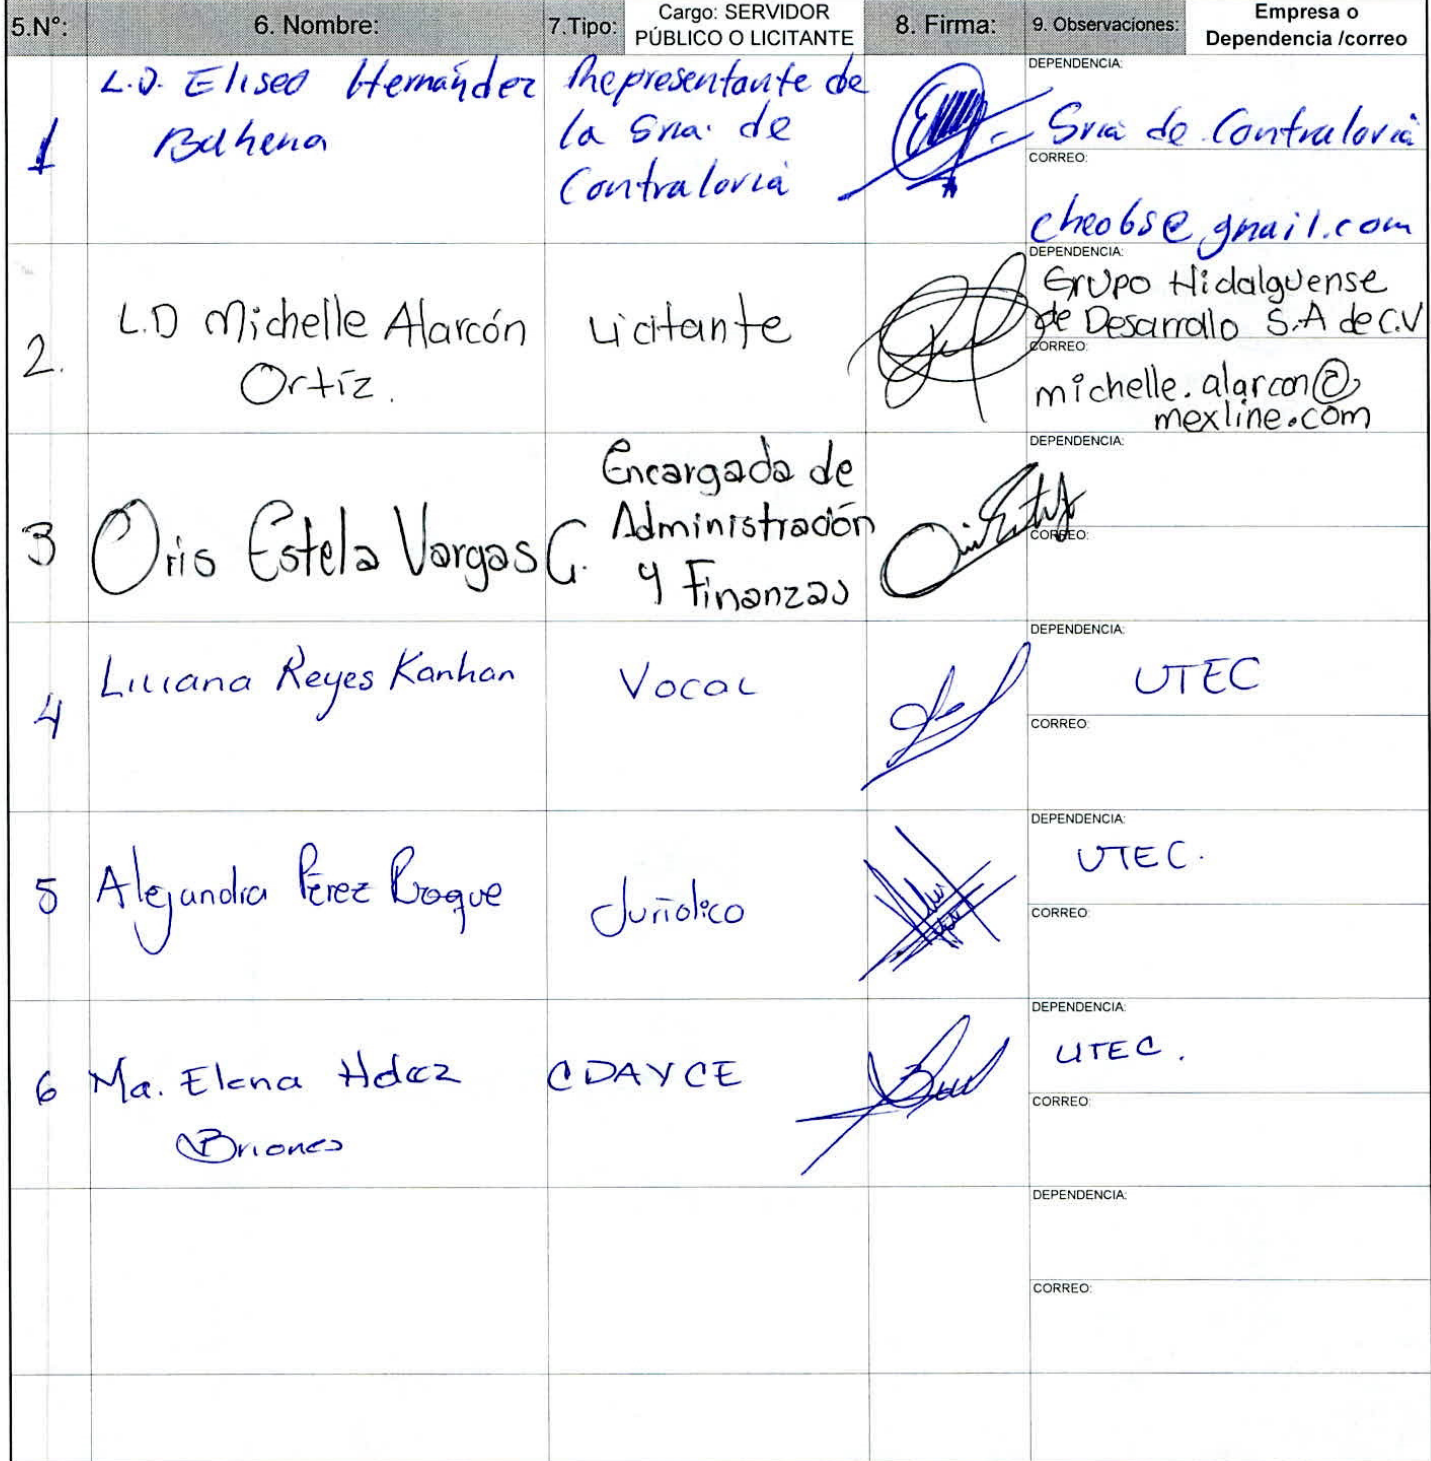 5.N°: 6. Nombre: 7.Tipo: Cargo: SERVIDOR PÚBLICO O LICITANTE 8. Firma: 9. Observaciones: Empresa o Dependencia /correo
1
L.D. Eliseo Hernández
Bahena
Representante de
la Sria. de
Contraloria
DEPENDENCIA:
Sria de Contraloria
CORREO:
cheobs@gmail.com
2.
L.D Michelle Alarcón
Ortíz.
Licitante
DEPENDENCIA:
Grupo Hidalguense
de Desarrollo S.A de C.V
CORREO:
michelle.alarcon@
mexline.com
3
Oris Estela Vargas G.
Encargada de
Administración
y Finanzas
DEPENDENCIA:
CORREO:
4
Reyes Kanhan
Vocal
DEPENDENCIA:
UTEC
CORREO:
5
Alejandra Pérez Roque
Jurídico
DEPENDENCIA:
UTEC.
CORREO:
6
Ma. Elena Hdez
Briones
CDAYCE
DEPENDENCIA:
UTEC.
CORREO:
DEPENDENCIA:
CORREO: